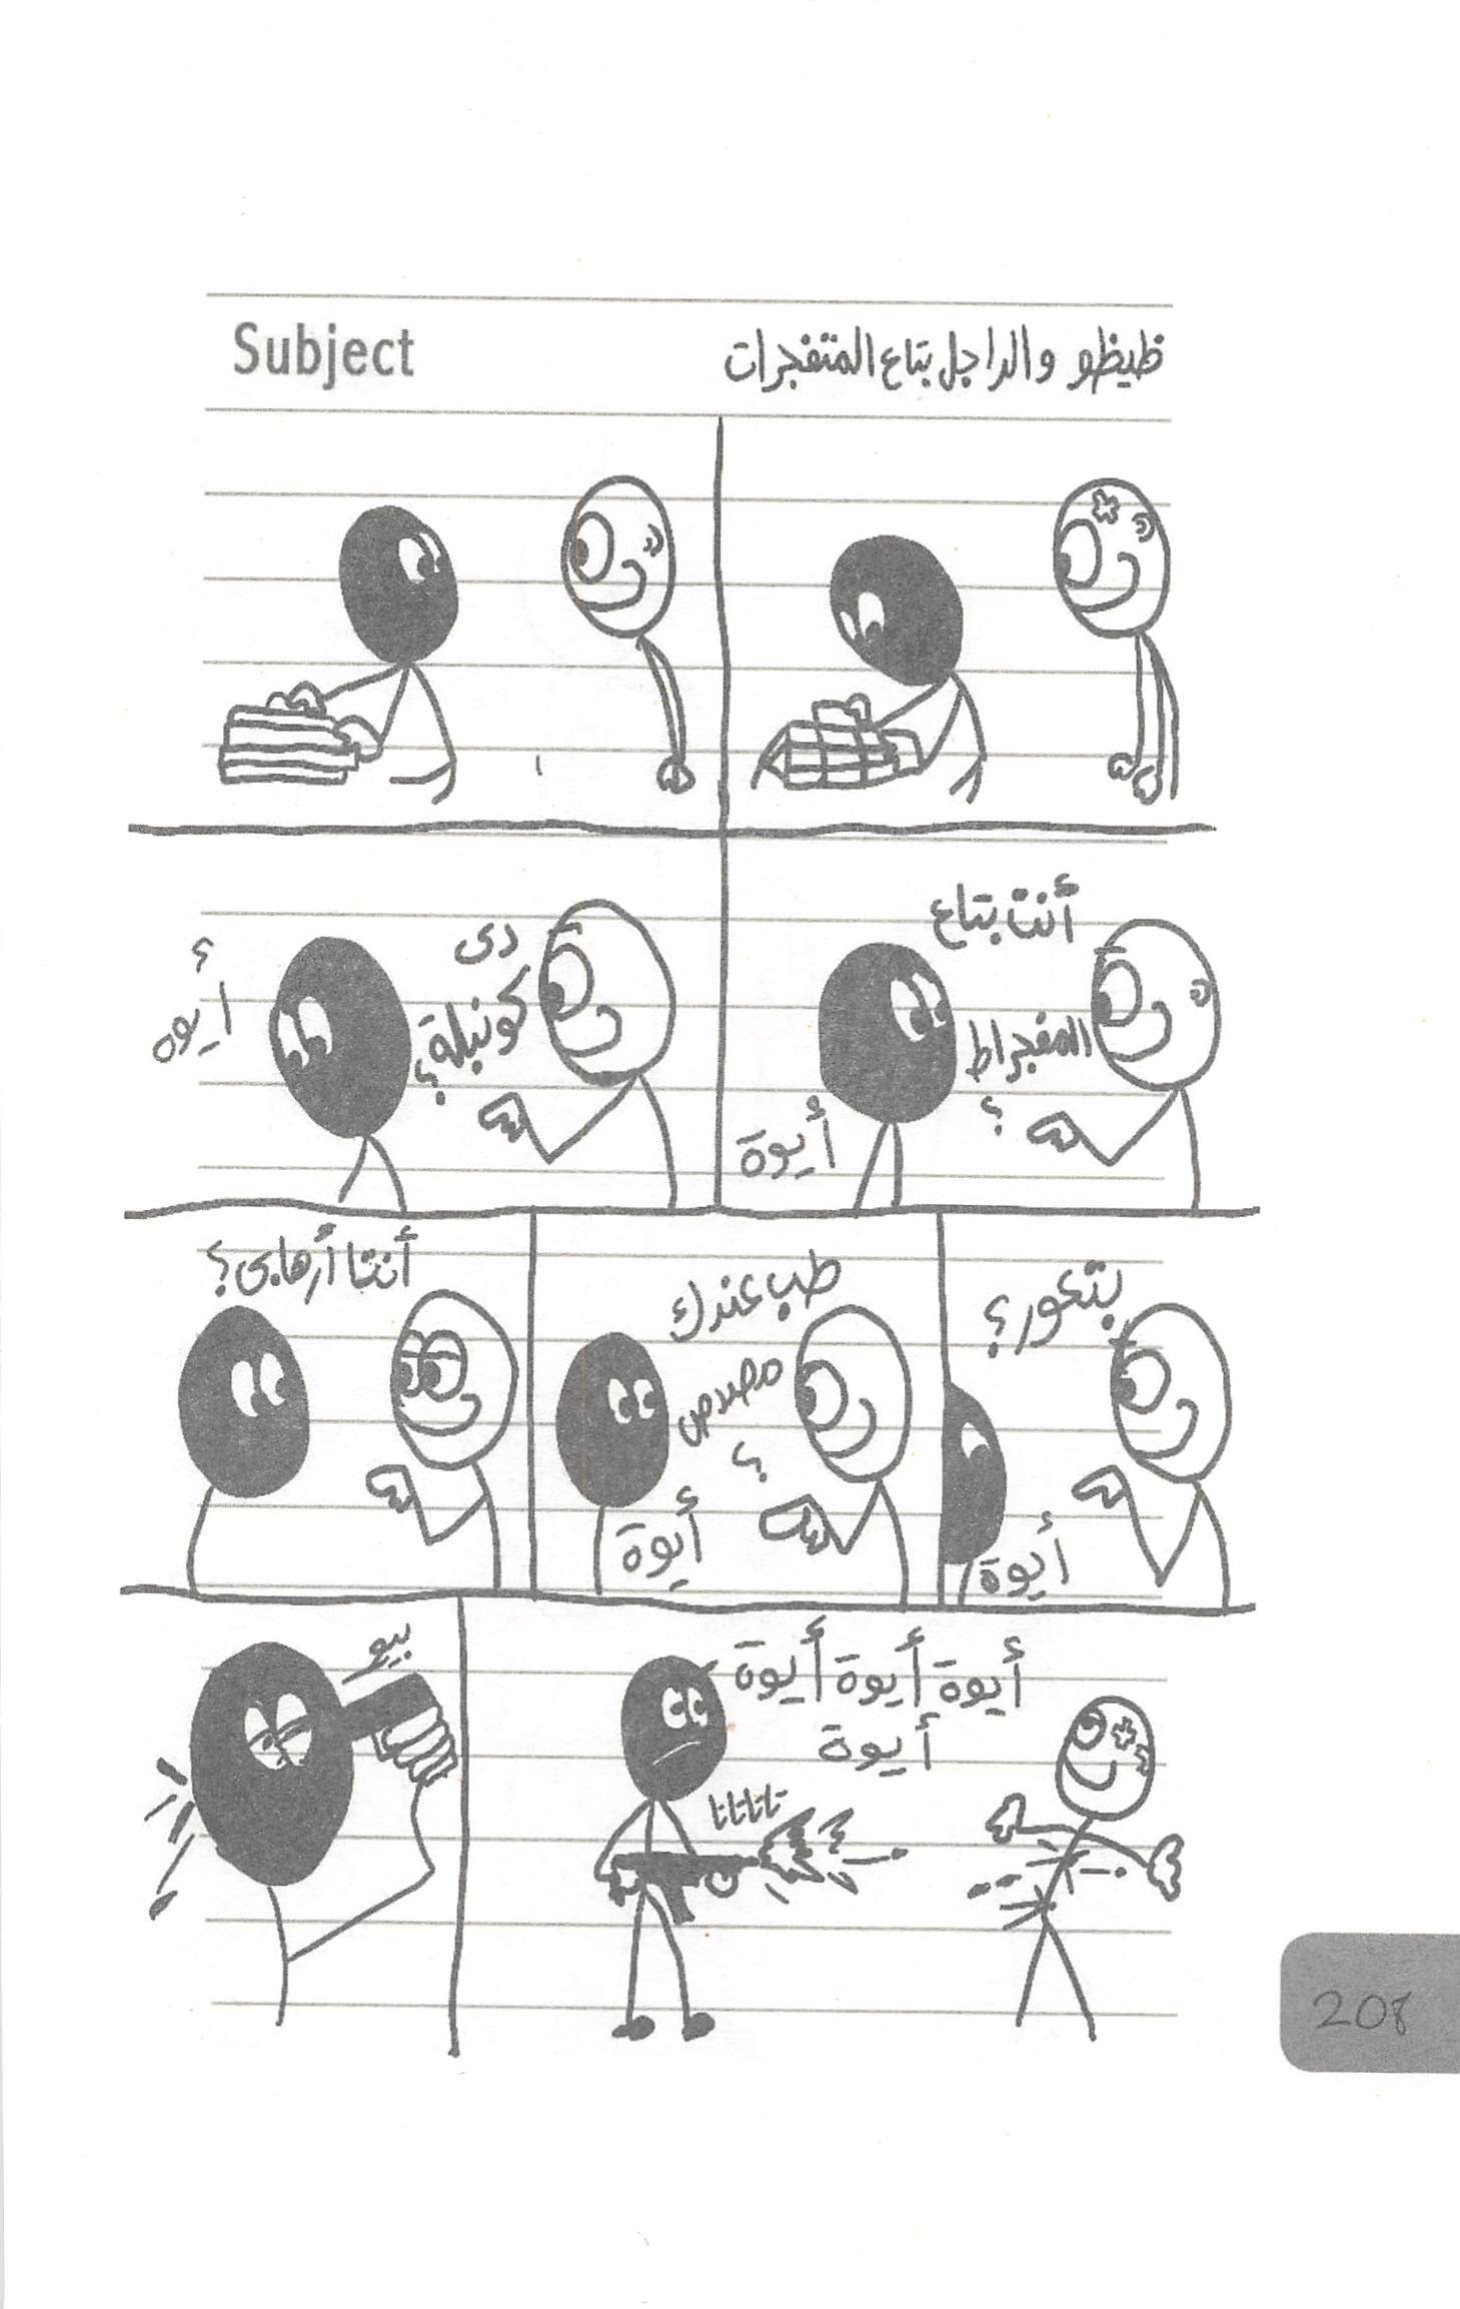 Subject
ظيظو والراجل بتاع المتفجرات
أنت بتاع
المفجراط
؟
أيوة
دى
كونبلة؟
أيوه
؟
بتكور؟
أيوة
طب عندك
مصدص
؟
أيوة
أنتا أرهابى؟
أيوة أيوة أيوة
أيوة
تاتاتاتا
بيو
208